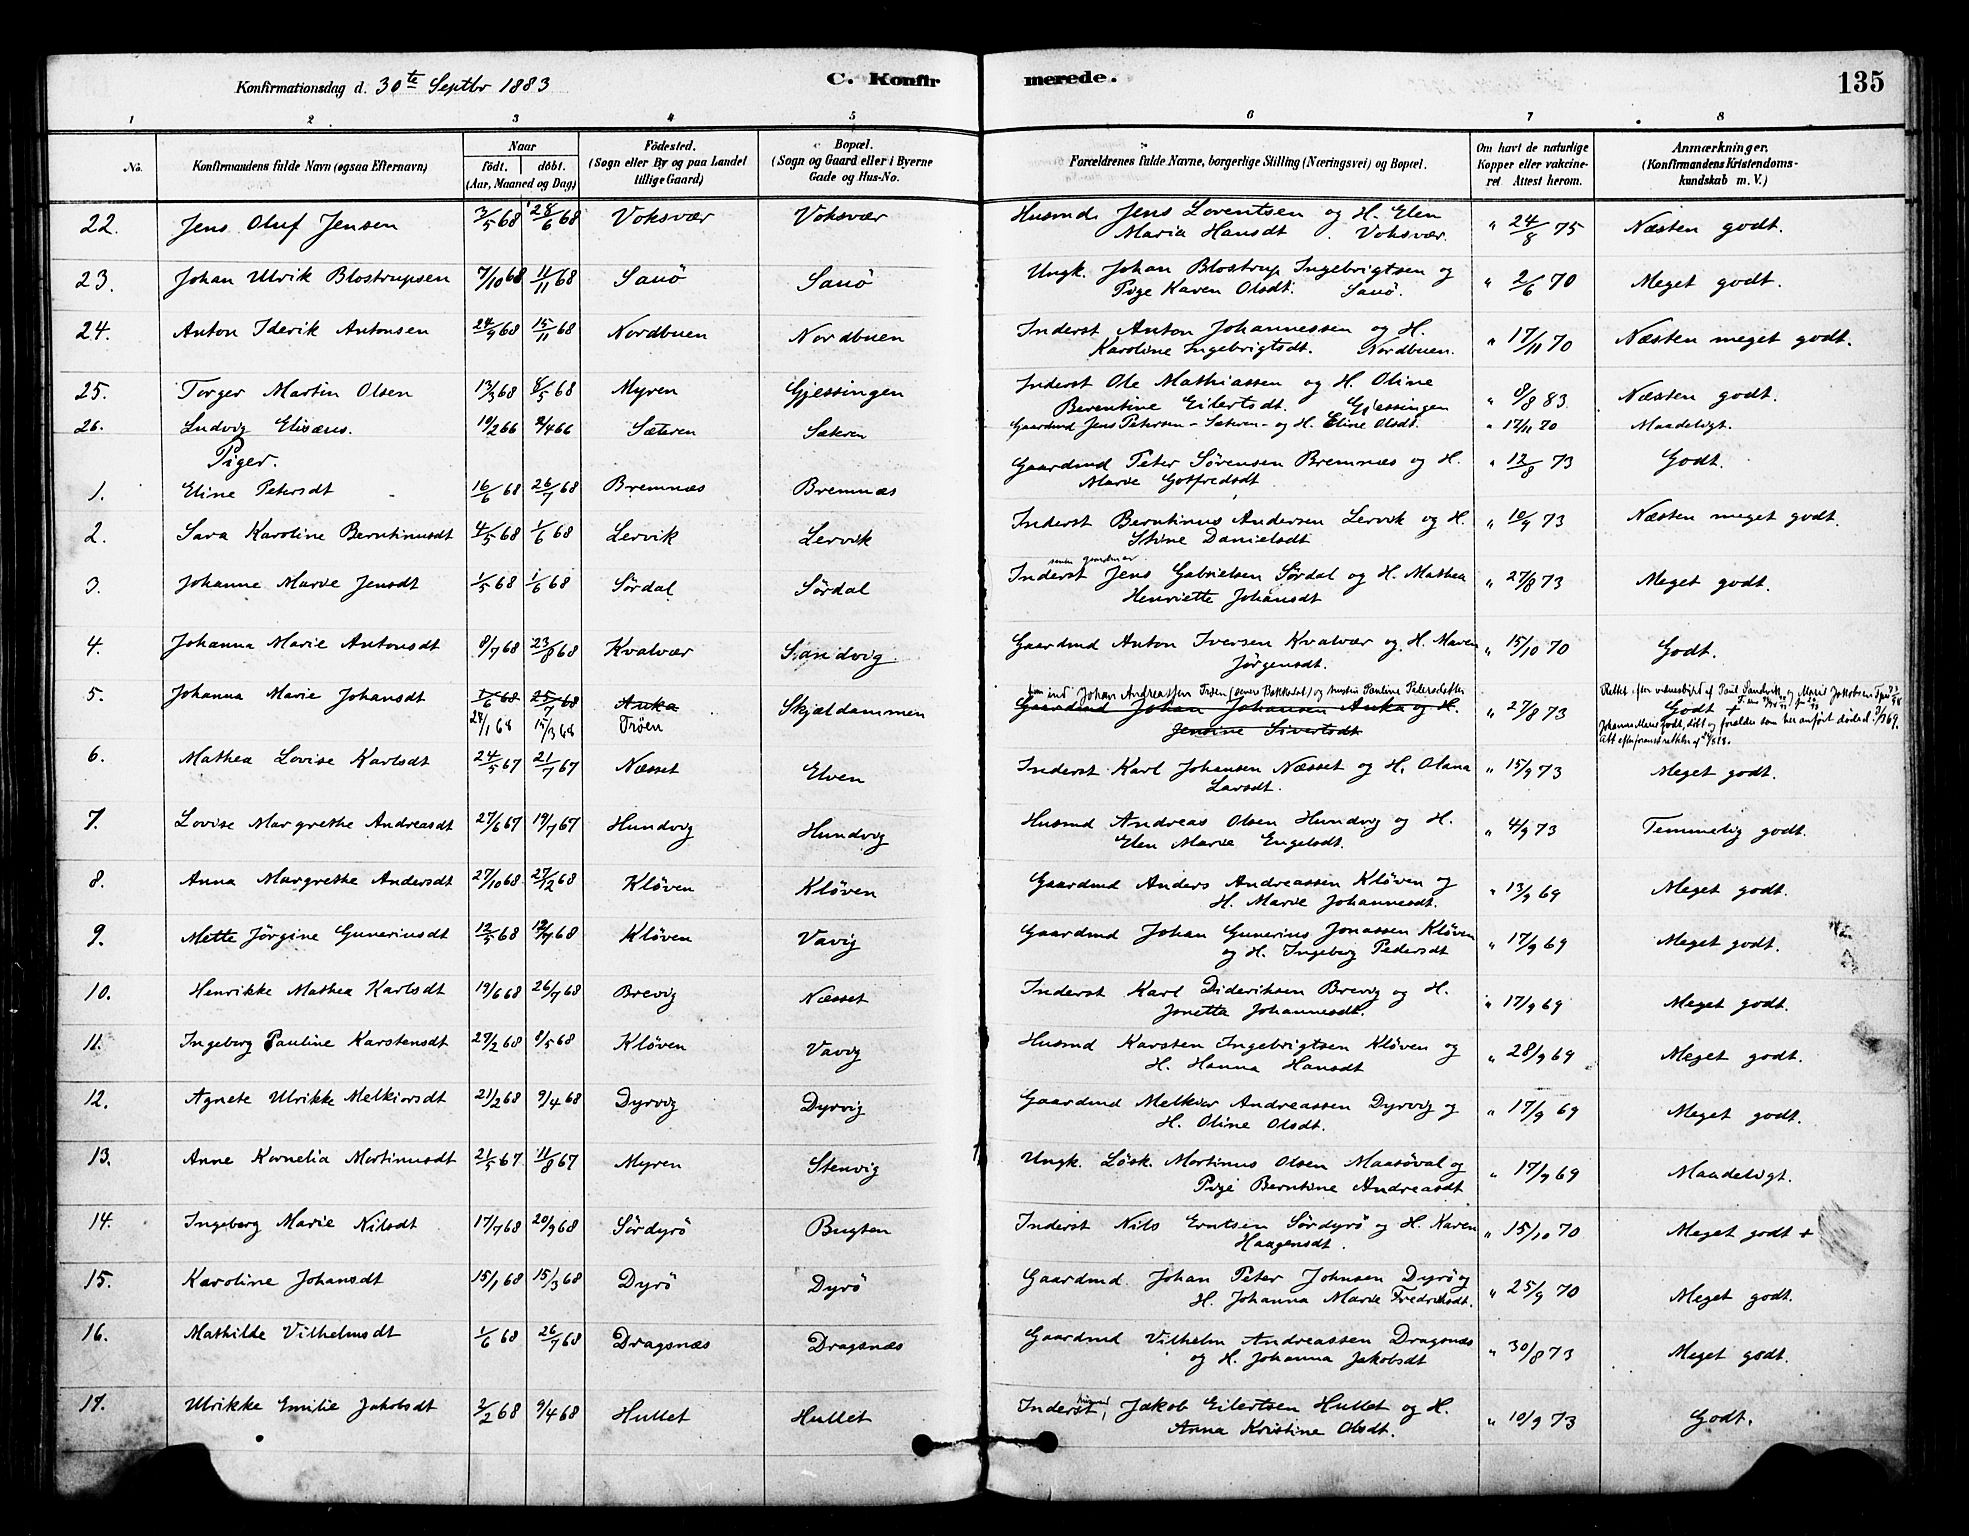 Konfirmationsdag d. 30te Septbr 1883 C. Konfirmerede. 135
1 2 3 4 5 6 7 8
No. Konfirmandens fulde Navn (ogsaa Efternavn) Naar født. døbt. (Aar, Maaned og Dag) Fødested. (Sogn eller By og paa Landet tillige Gaard) Bopæl. (Sogn og Gaard eller i Byerne Gade og Hus-No. Forældrenes fulde Navne, borgerlige Stilling (Næringsvei) og Bopæl. Om havt de naturlige Kopper eller vakcineret Attest herom. Anmærkninger. (Konfirmandens Kristendomskundskab m. V.)
22. Jens Oluf Jensen 3/5 68 28/6 68 Voksvær Voksvær Husmd. Jens Lorentsen og H. Elen " 24/8 75 Næsten godt.
Maria Hansdt. Voksvær.
23. Johan Ulrik Blostrupsen 7/10 68 11/11 68 Sauø Sauø Ungk. Johan Blostrup Ingebrigtsen og " 2/6 70 Meget godt.
Pige Karen Olsdt. Sauø.
24. Anton Iderik Antonsen 24/9 68 15/11 68 Nordbuen Nordbuen Inderst Anton Johannessen og H. " 17/11 70 Næsten meget godt.
Karoline Ingebrigtsdt. Nordbuen.
25. Torger Martin Olsen 13/3 68 8/5 68 Myren Gjessingen Inderst Ole Mathiassen og H. Oline " 8/8 83 Næsten godt.
Berentine Eilertsdt. Gjessingen
26. Ludvig Elisæus. 19/2 66 2/4 66 Sæteren Sæteren Gaardmd Jens Petersen - Sæteren - og H. Eline Olsdt. " 17/11 70 Maadeligt.
Piger.
1. Eline Petersdt 16/6 68 26/7 68 Bremnæs Bremnæs Gaardmd Peter Sørensen Bremnæs og H. " 12/8 73 Godt.
Marie Gotfredsdt
2. Sara Karoline Berntinusdt 4/5 68 1/6 68 Lervik Lervik Inderst Berntinus Andersen Lervik og H. " 10/9 73 Næsten meget godt.
Stine Danielsdt
3. Johanne Marie Jensdt 1/5 68 1/6 68 Sørdal Sørdal Inderst Jens Gabrielsen Sørdal og H. Mathea " 27/8 73 Meget godt.
Henriette Johansdt
4. Johanna Marie Antonsdt 8/7 68 23/8 68 Kvalvær Sandvig Gaardmd Anton Iversen Kvalvær og H. Maren " 15/10 70 Godt.
Jørgensdt.
5. Johanna Marie Johansdt 1/6 68 25/7 68 Anka Skjældammen Johan Andreassen Trøen (senere Bekkedal) og hustru Pauline Petersdatter
Gaardmd Johan Johansen Anka og H. " 27/8 73 Godt +
24/1 68 15/3 68 Trøen Jensine Sivertsdt
6. Mathea Lovise Karlsdt 24/5 67 21/7 67 Næsset Elven Inderst Karl Johansen Næsset og H. Olana " 15/9 73 Meget godt.
Larsdt.
7. Lovise Margrethe Andreasdt 27/6 67 19/7 67 Hundvig Hundvig Husmd Andreas Olsen Hundvig og H. " 4/9 73 Temmelig godt.
Elen Marie Engelsdt.
8. Anna Margrethe Andersdt 27/10 68 27/12 68 Kløven Kløven Gaardmd Anders Andreassen Kløven og " 13/9 69 Meget godt.
H. Marie Johannesdt.
9. Mette Jørgine Guneriusdt 12/5 68 12/7 68 Kløven Vavig Gaardmd Johan Gunerius Jonassen Kløven " 17/9 69 Meget godt.
og H. Ingeberg Pedersdt
10. Henrikke Mathea Karlsdt 19/6 68 26/7 68 Brevig Næsset Inderst Karl Dideriksen Brevig og H. " 17/9 69 Meget godt.
Jonetta Johannesdt.
11. Ingeberg Pauline Karstensdt 27/2 68 8/5 68 Kløven Vavig Husmd Karsten Ingebrigtsen Kløven og " 28/9 69 Meget godt.
H. Hanna Hansdt
12. Agnete Ulrikke Melkiorsdt 21/2 68 9/4 68 Dyrvig Dyrvig Gaardmd Melkior Andreassen Dyrvig og " 17/9 69 Meget godt.
H. Oline Olsdt.
13. Anne Kornelia Martinusdt 21/5 67 11/8 67 Myren Stenvig Ungk. Løsk. Martinus Olsen Maasøval og " 17/9 69 Maadeligt.
Pige Berntine Andreasdt
14. Ingeberg Marie Nilsdt 17/7 68 20/9 68 Sørdyrø Bugten Inderst Nils Erntsen Sørdyrø og H. Karen " 15/10 70 Meget godt +
Haagensdt.
15. Karoline Johansdt 15/1 68 15/3 68 Dyrø Dyrø Gaardmd. Johan Peter Johnsen Dyrø og " 25/9 70 Meget godt.
H. Johanna Marie Fredriksdt.
16. Mathilde Vilhelmsdt 1/6 68 26/7 68 Dragsnæs Dragsnæs Gaardmd Vilhelm Andreassen Dragsnæs " 30/8 73 Meget godt.
og H. Johanna Jakobsdt
17. Ulrikke Emilie Jakobsdt 2/2 68 9/4 68 Hullet Hullet Inderst, Jakob Eilertsen Hullet og H. " 10/9 73 Godt.
Anna Kristine Olsdt.